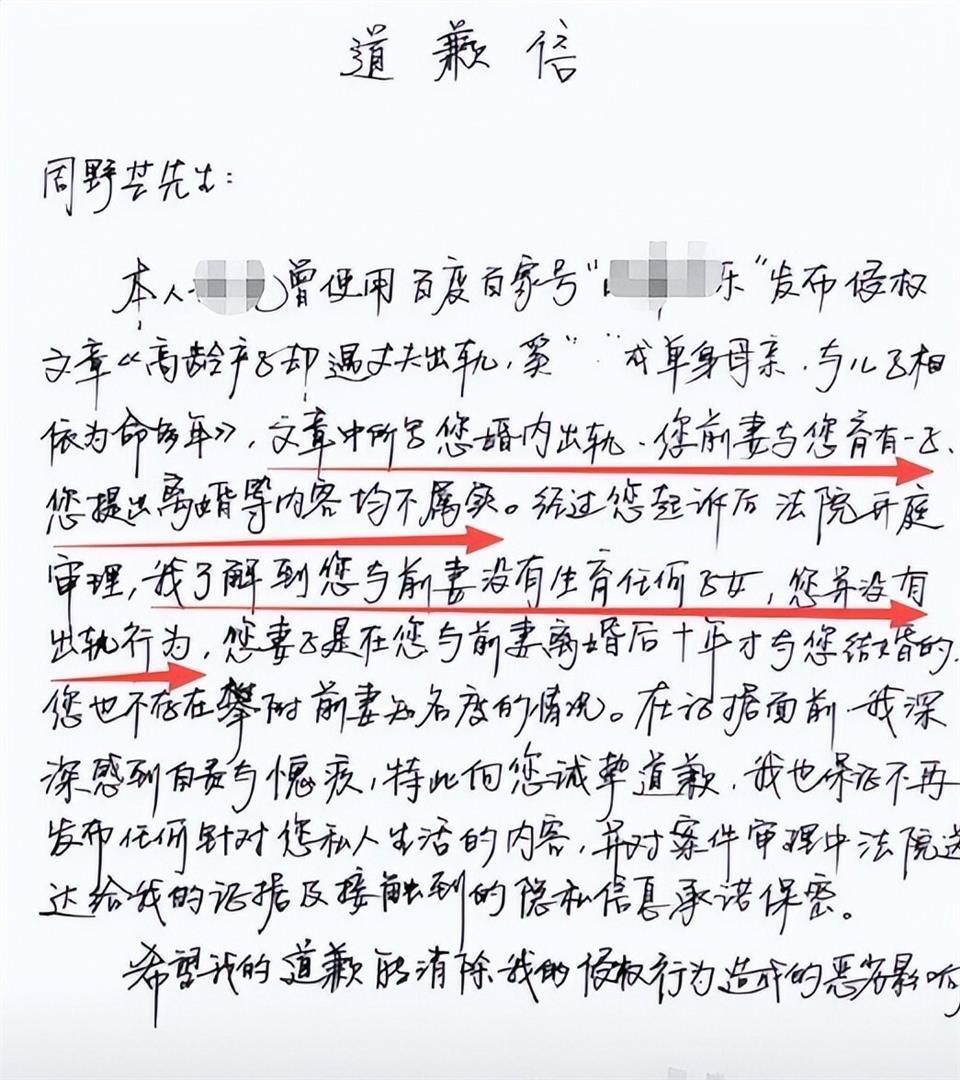 道歉信
周野芒先生:
本人 曾使用百度百家号" 乐"发布侵权
文章《高龄产子却遇丈夫出轨,奚 成单身母亲,与儿子相
依为命多年》,文章中所写您婚内出轨、您前妻与您育有一子、
您提出离婚等内容均不属实。经过您起诉后法院开庭
审理,我了解到您与前妻没有生育任何子女,您并没有
出轨行为,您妻子是在您与前妻离婚后十年才与您结婚的,
您也不存在攀附前妻知名度的情况。在证据面前,我深
深感到自责与愧疚,特此向您诚挚道歉,我也保证不再
发布任何针对您私人生活的内容,并对案件审理中法院送
达给我的证据及接触到的隐私信息承诺保密。
希望我的道歉能消除我的侵权行为造成的恶劣影响